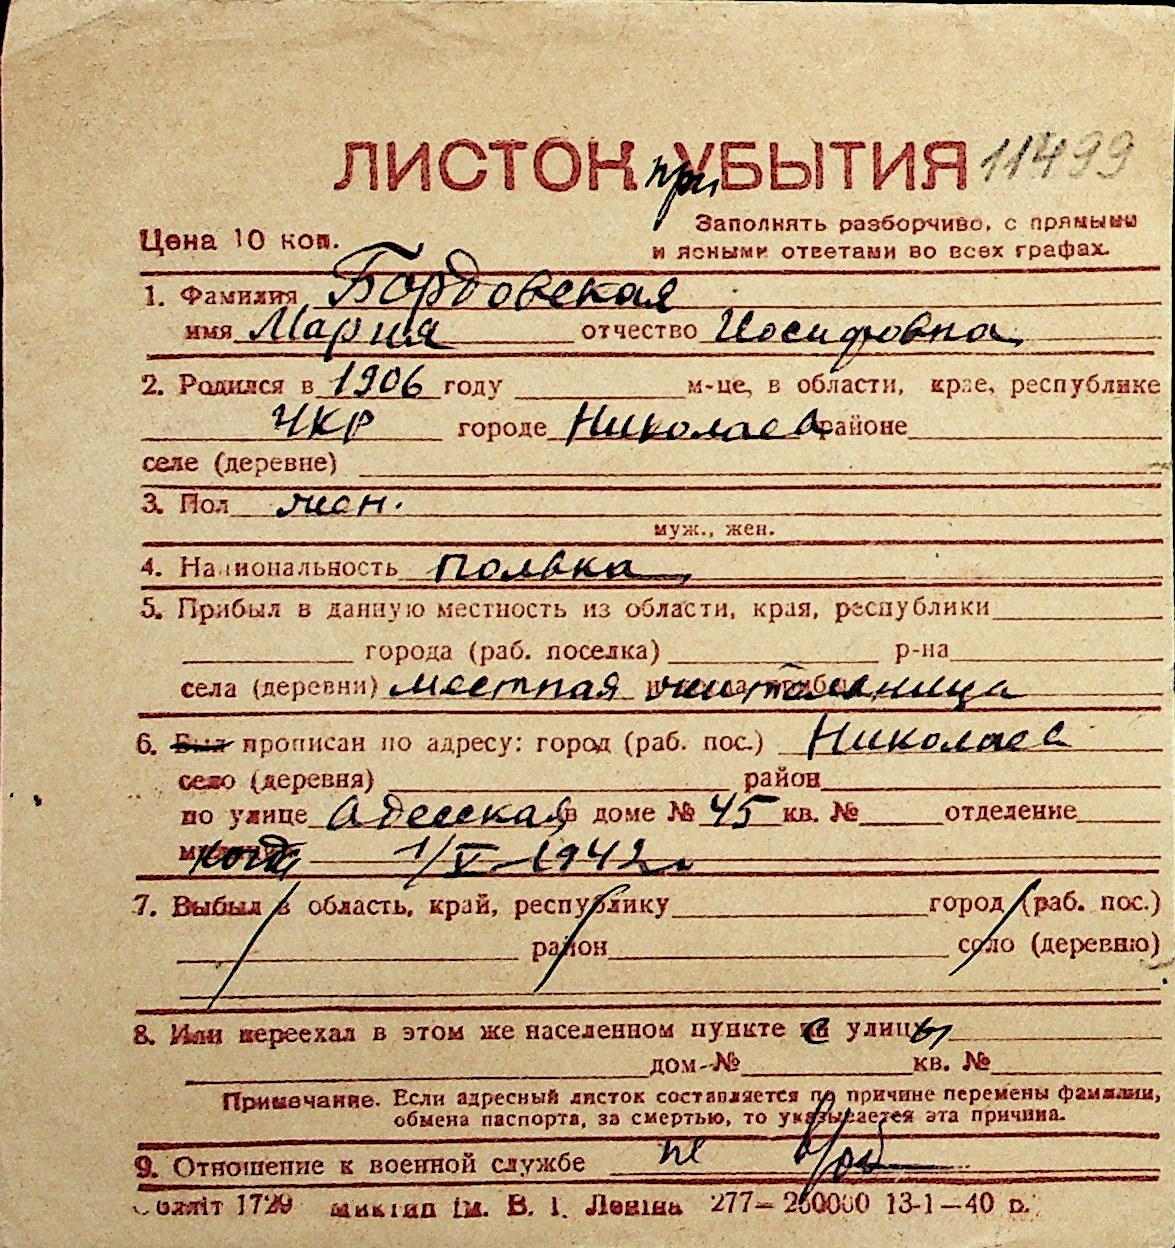 ЛИСТОК при УБЫТИЯ 11499
Цена 10 коп.
Заполнять разборчиво, с прямыми
и ясными ответами во всех графах.
1. Фамилия Бордовская
имя Мария отчество Иосифовна
2. Родился в 1906 году м-це, в области, крае, республике
УКР городе Николаев районе
селе (деревне)
3. Пол жен.
муж., жен.
4. Национальность полька
5. Прибыл в данную местность из области, края, республики
города (раб. поселка) р-на
села (деревни) местная жительница
6. Был прописан по адресу: город (раб. пос.) Николаев
село (деревня) район
по улице Адесская в доме № 45 кв. № отделение
когда 1/V-1942
7. Выбыл в область, край, республику город (раб. пос.)
район село (деревню)
8. Или переехал в этом же населенном пункте с улицы
дом-№ кв. №
Примечание. Если адресный листок составляется по причине перемены фамилии,
обмена паспорта, за смертью, то указывается эта причина.
9. Отношение к военной службе не в/об
1729 ім. В. І. Леніна 277—260000 13-1—40 р.